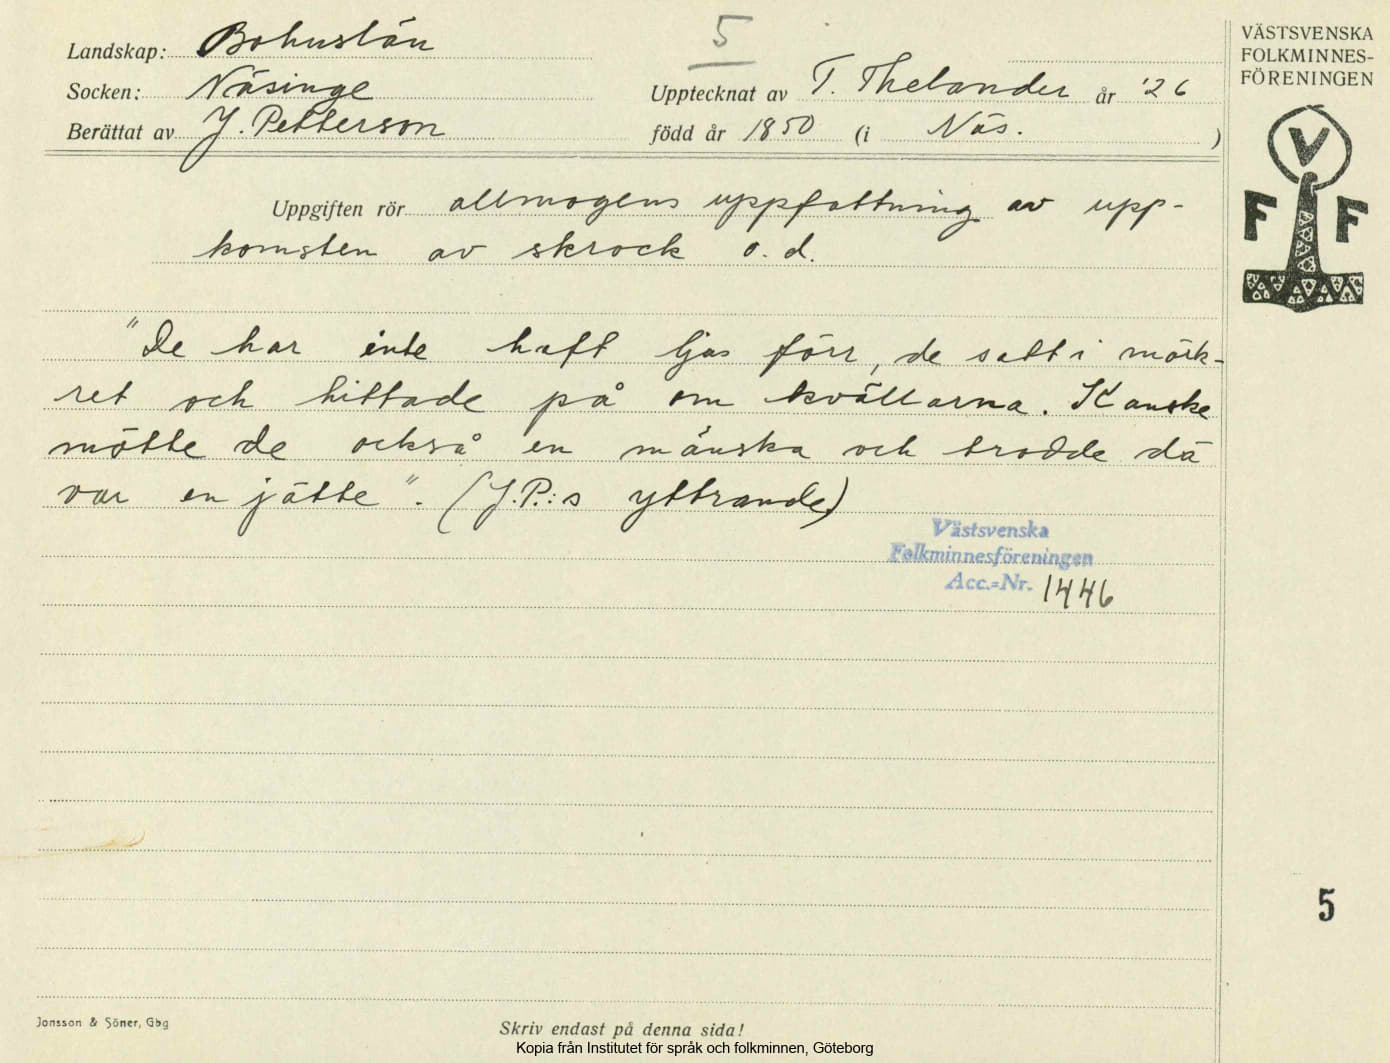 5
VÄSTSVENSKA
FOLKMINNES-
FÖRENINGEN
V
F F
Landskap: Bohuslän
Socken: Näsinge Upptecknat av T. Thelander år '26
Berättat av J. Petterson född år 1850 (i Näs. )
Uppgiften rör allmogens uppfattning av upp-
komsten av skrock o. d.
"De har inte haft ljus förr, de satt i mörk-
ret och hittade på om kvällarna. Kanske
mötte de också en mänska och trodde dä
var en jätte". (J.P.:s yttrande)
Västsvenska
Folkminnesföreningen
Acc.=Nr. 1446
5
Jonsson & Söner, Gbg
Skriv endast på denna sida!
Kopia från Institutet för språk och folkminnen, Göteborg